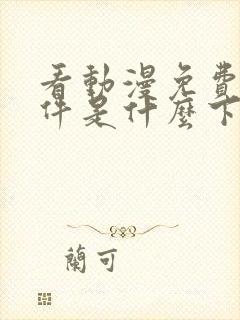 看動漫免費
件是什麼下
蘭可